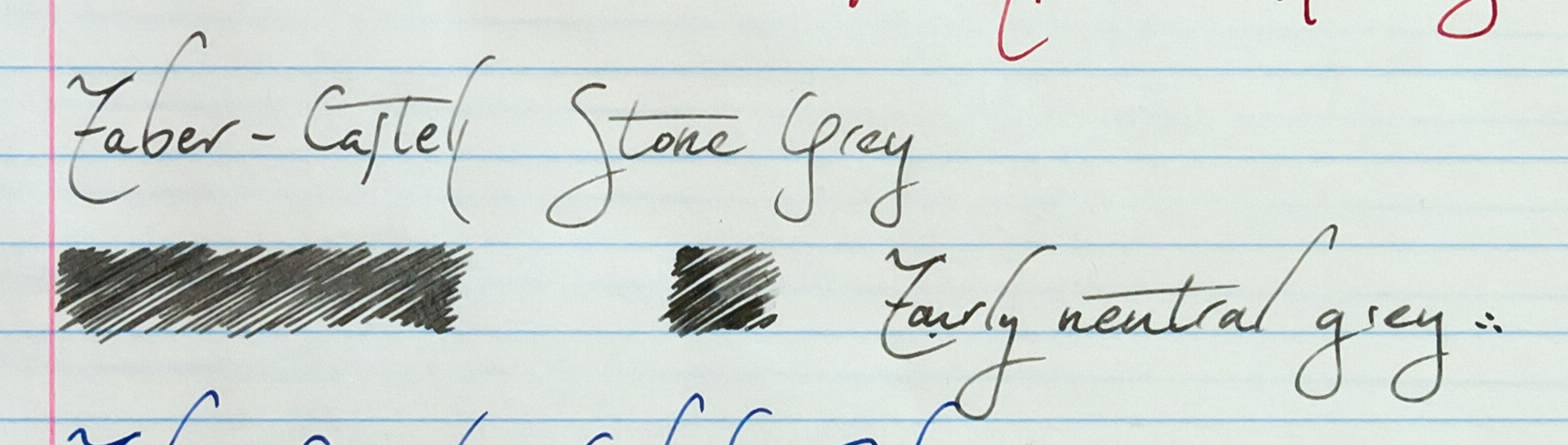 Faber-Castell Stone Grey
Fairly neutral grey ∴